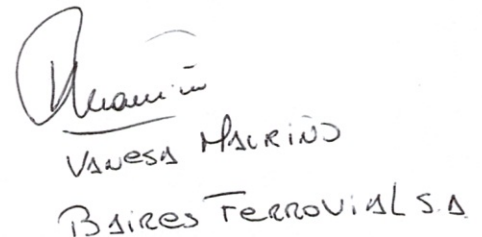 VANESA MAURIÑO
BAIRES FERROVIAL S.A.